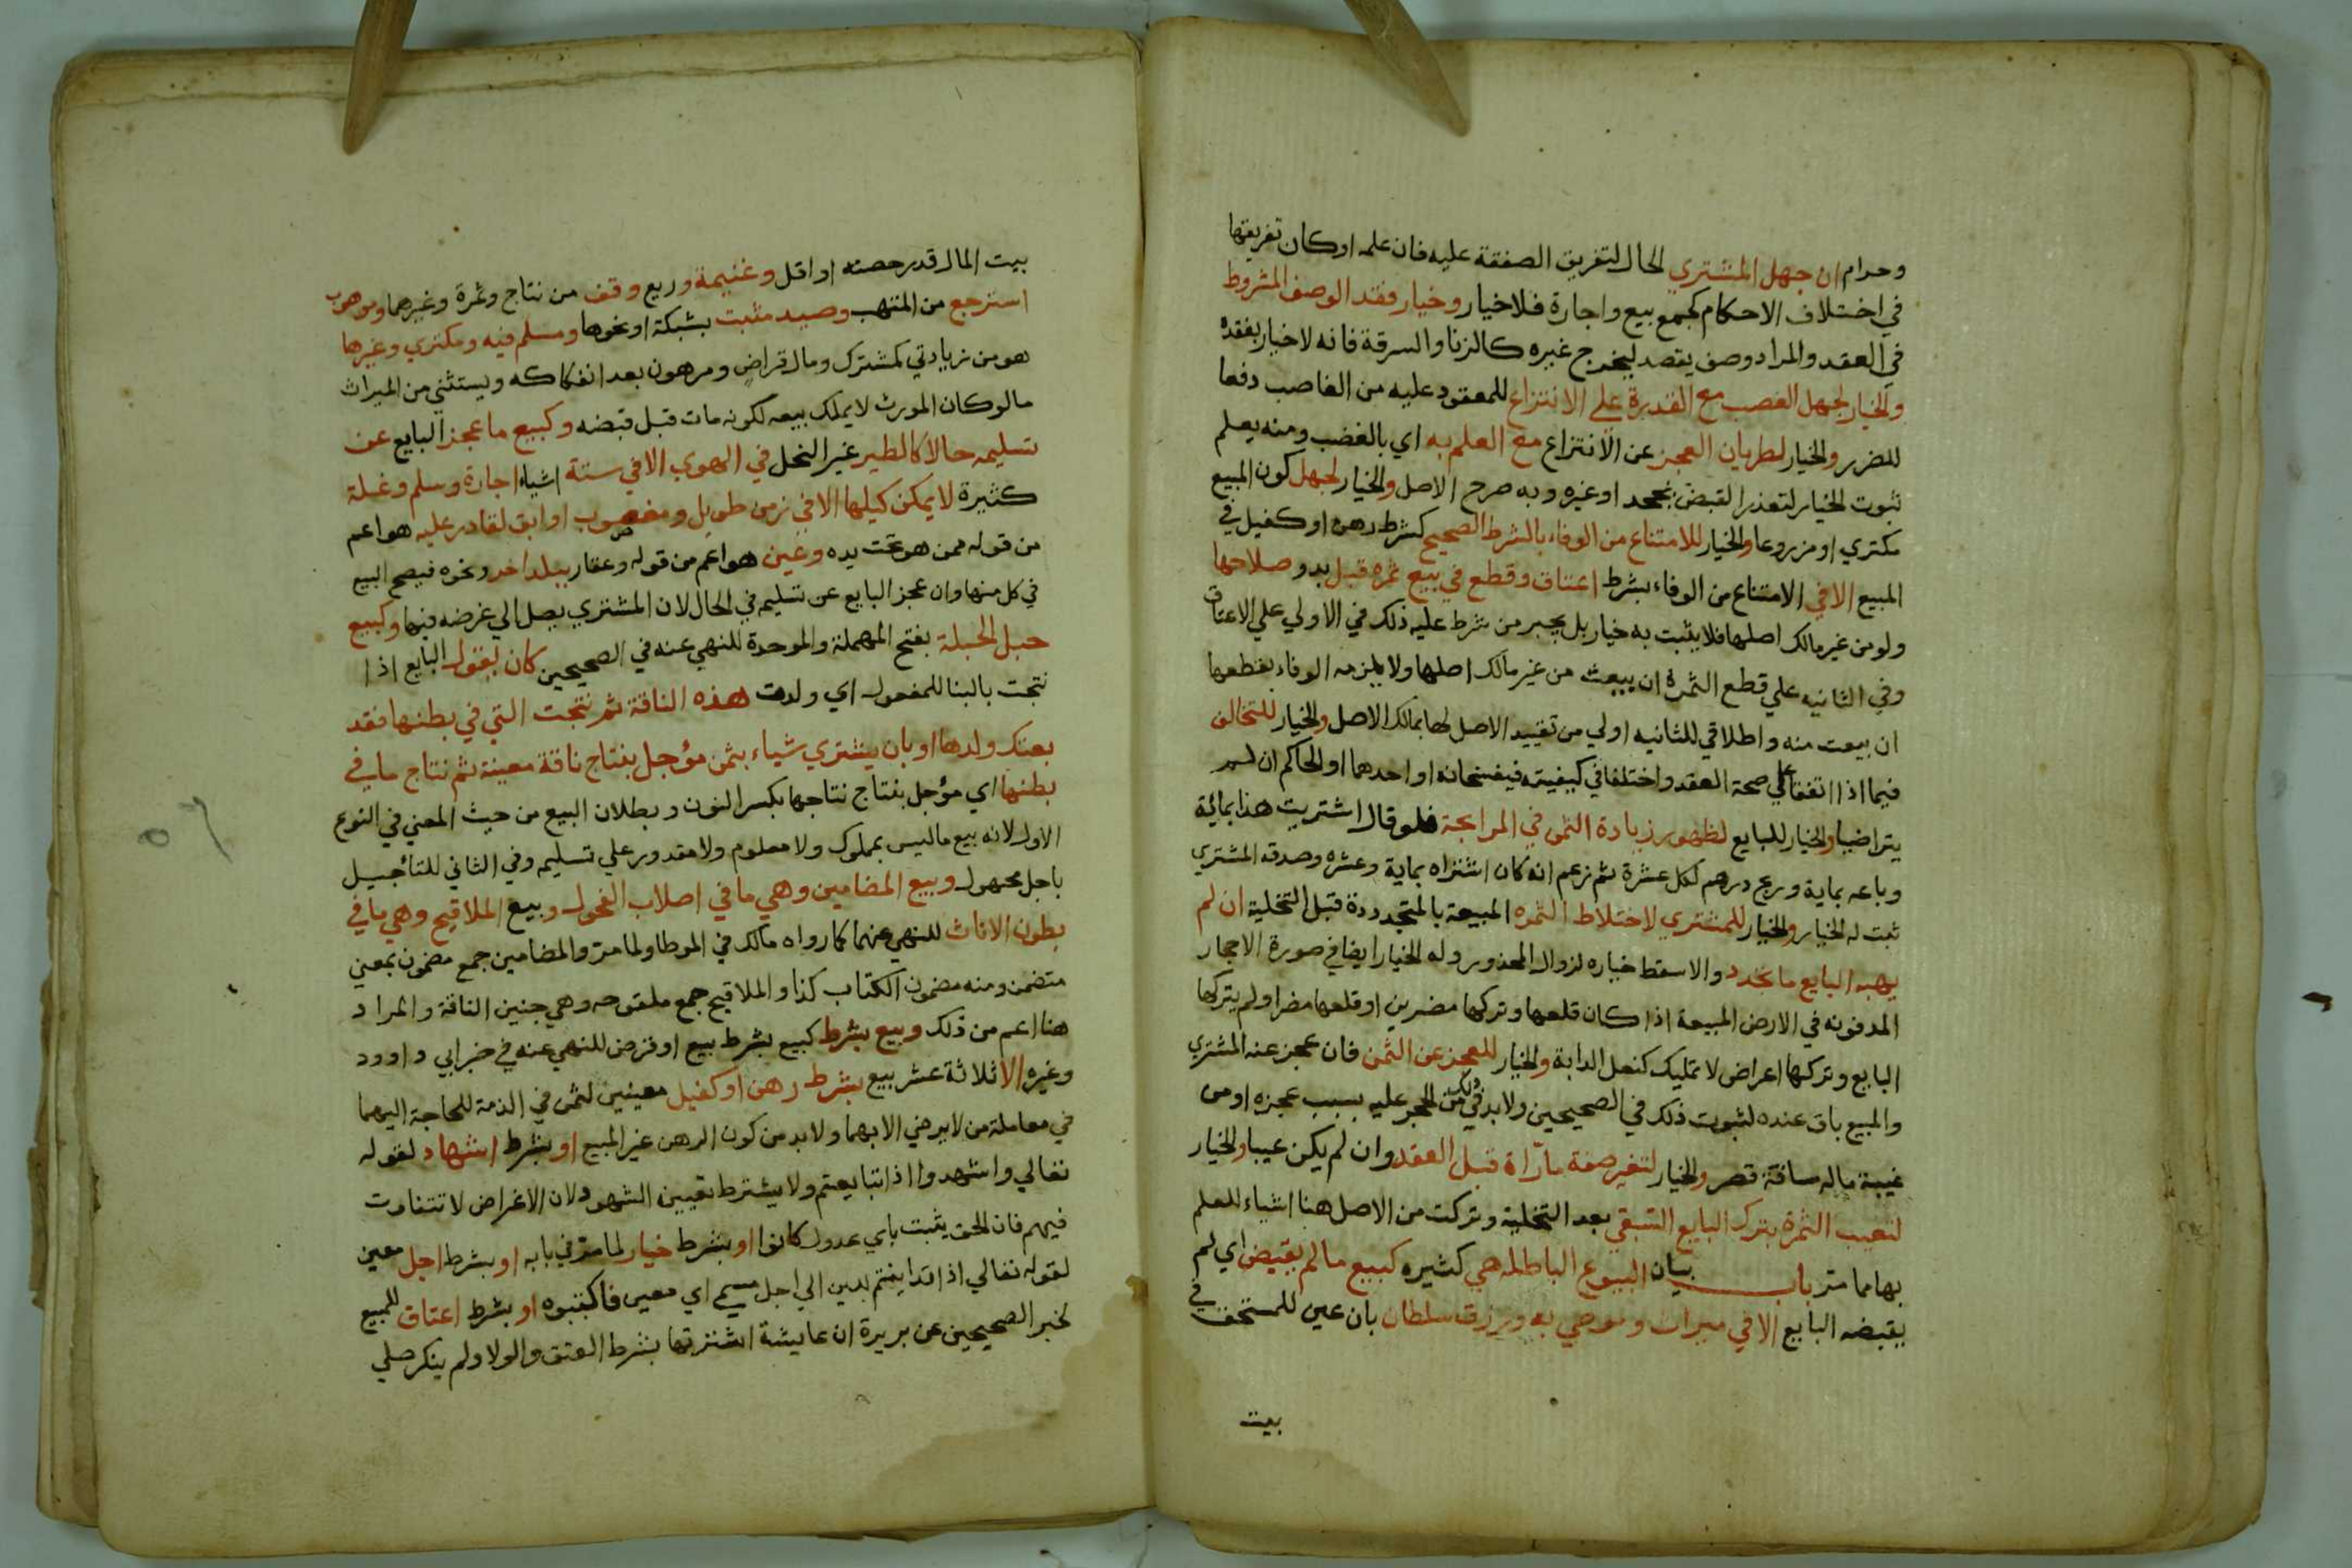 وحرام ان جهل المشتري الحال لتفريق الصفقة عليه فان علمه اوكان تفريقها
في اختلاف الاحكام كجمع بيع واجارة فلاخيار وخيار فقد الوصف المشروط
في العقد والمراد وصف يقصد ليخرج غيره كالزنا والسرقة فانه لاخيار بفقده
والخيار لجهل الغصب مع القدرة علي الانتزاع للمعقود عليه من الغاصب دفعا
للضرر والخيار لطريان العجز عن الانتزاع مع العلم به اي بالغصب ومنه يعلم
ثبوت الخيار لتعذر القبض بجحد اوغيره وبه صرح الاصل والخيار لجهل كون المبيع
مكتري اومزروعا والخيار للامتناع من الوفاء بالشرط الصحيح كشرط رهن اوكفيل في
المبيع الافي الامتناع من الوفاء بشرط اعتاق وقطع في بيع ثمره قبل بدو صلاحها
ولومن غيرمالك اصلها فلايثبت به خيار بل يجبر من شرط عليه ذلك في الاولي علي الاعتاق
وفي الثانيه علي قطع الثمرة ان بيعت من غير مالك اصلها ولا يلزمه الوفاء بقطعها
ان بيعت منه واطلاقي للثانيه اولي من تقييد الاصل لها بمالك الاصل والخيار للتخالف
فيما اذا اتفقا علي صحة العقد واختلفا في كيفيته فيفسخانه او احدهما او الحاكم ان لم
يتراضيا والخيار للبايع لظهور زيادة الثمن في المرابحة فلوقال اشتريت هذا بمائة
وباعه بماية وربح درهم لكل عشرة ثم زعم انه كان اشتراه بماية وعشره وصدقه المشتري
ثبت له الخيار والخيار للمشتري لاختلاط الثمره المبيعة بالمتجددة قبل التخلية ان لم
يهبه البايع ماتجدد والاسقط خياره لزوال المحذور وله الخيار ايضا في صورة الاحجار
المدفونه في الارض المبيعة اذا كان قلعها وتركها مضرين اوقلعها مضرا ولم يتركها
البايع وتركها اعراض لا تمليك كنعل الدابة والخيار للعجز عن الثمن فان عجز عنه المشتري
والمبيع باق عنده لثبوت ذلك في الصحيحين ولابد في ذلك من الحجر عليه بسبب عجزه اومن
غيبة ماله مسافة قصر والخيار لتغير صفة مارآة قبل العقد وان لم يكن عيبا والخيار
لتعيب الثمرة بترك البايع السقي بعد التخلية وتركت من الاصل هنا اشياء للعلم
بها مما مر باب بيان البيوع الباطلة هي كثيره كبيع مالم يقبض اي لم
يقبضه البايع الافي ميراث وموصي به ورزق سلطان بان عين للمستحق في
بيت
بيت المال قدر حصته اواقل وغنيمة وريع وقف من نتاج وثمرة وغيرهما وموهوب
استرجع من المتهب وصيد مثبت بشبكة اونحوها ومسلم فيه ومكتري وغيرها
هو من زيادتي كمشترك ومال قراض ومرهون بعد انفكاكه ويستثني من الميراث
مالوكان المورث لايملك بيعه لكونه مات قبل قبضه وكبيع ما عجز البايع عن
تسليمه حالا كالطير غير النحل في الهوي الافي ستة اشياء اجارة وسلم وغلة
كثيرة لايمكن كيلها الافي زمن طويل ومغصوب اوابق لقادر عليه هو اعم
من قوله ممن هو تحت يده وعين هو اعم من قوله وعقار ببلد اخر ونحوه فيصح البيع
في كل منها وان عجز البايع عن تسليمه في الحال لان المشتري يصل الي غرضه فيها وكبيع
حبل الحبلة بفتح المهملة والموحدة للنهي عنه في الصحيحين كان يقول البايع اذا
نتجت بالبنا للمفعول اي ولدت هذه الناقة ثم نتجت التي في بطنها فقد
بعتك ولدها اوبان يشتري شياء بثمن مؤجل بنتاج ناقة معينة ثم نتاج مافي
بطنها اي مؤجل بنتاج نتاجها بكسر النون وبطلان البيع من حيث المعني في النوع
الاول لانه بيع ماليس بمملوك ولامعلوم ولامقدور علي تسليمه وفي الثاني للتأجيل
باجل مجهول وبيع المضامين وهي مافي اصلاب الفحول وبيع الملاقيح وهي مافي
بطون الاناث للنهي عنهما كمارواه مالك في الموطا ولما مر والمضامين جمع مضمون بمعني
متضمن ومنه مضمون الكتاب كذا والملاقيح جمع ملقوحه وهي جنين الناقة والمراد
هنا اعم من ذلك وبيع بشرط كبيع بشرط بيع اوقرض للنهي عنه في خبر ابي داوود
وغيره الاثلاثة عشر بيع بشرط رهن اوكفيل معينين لثمن في الذمة للحاجة اليهما
في معاملة من لايرضي الابهما ولابد من كون الرهن غير المبيع اوبشرط اشهاد لقوله
تعالي واشهدوا اذا تبايعتم ولايشترط تعيين الشهود لان الاغراض لاتتفاوت
فيهم فان الحق يثبت باي عدول كانوا اوبشرط خيار لما مر في بابه اوبشرط اجل معين
لقوله تعالي اذا تداينتم بدين الي اجل مسمي اي معين فاكتبوه اوبشرط اعتاق للمبيع
لخبر الصحيحين عن بريرة ان عايشة اشترتها بشرط العتق والولا ولم ينكر صلي